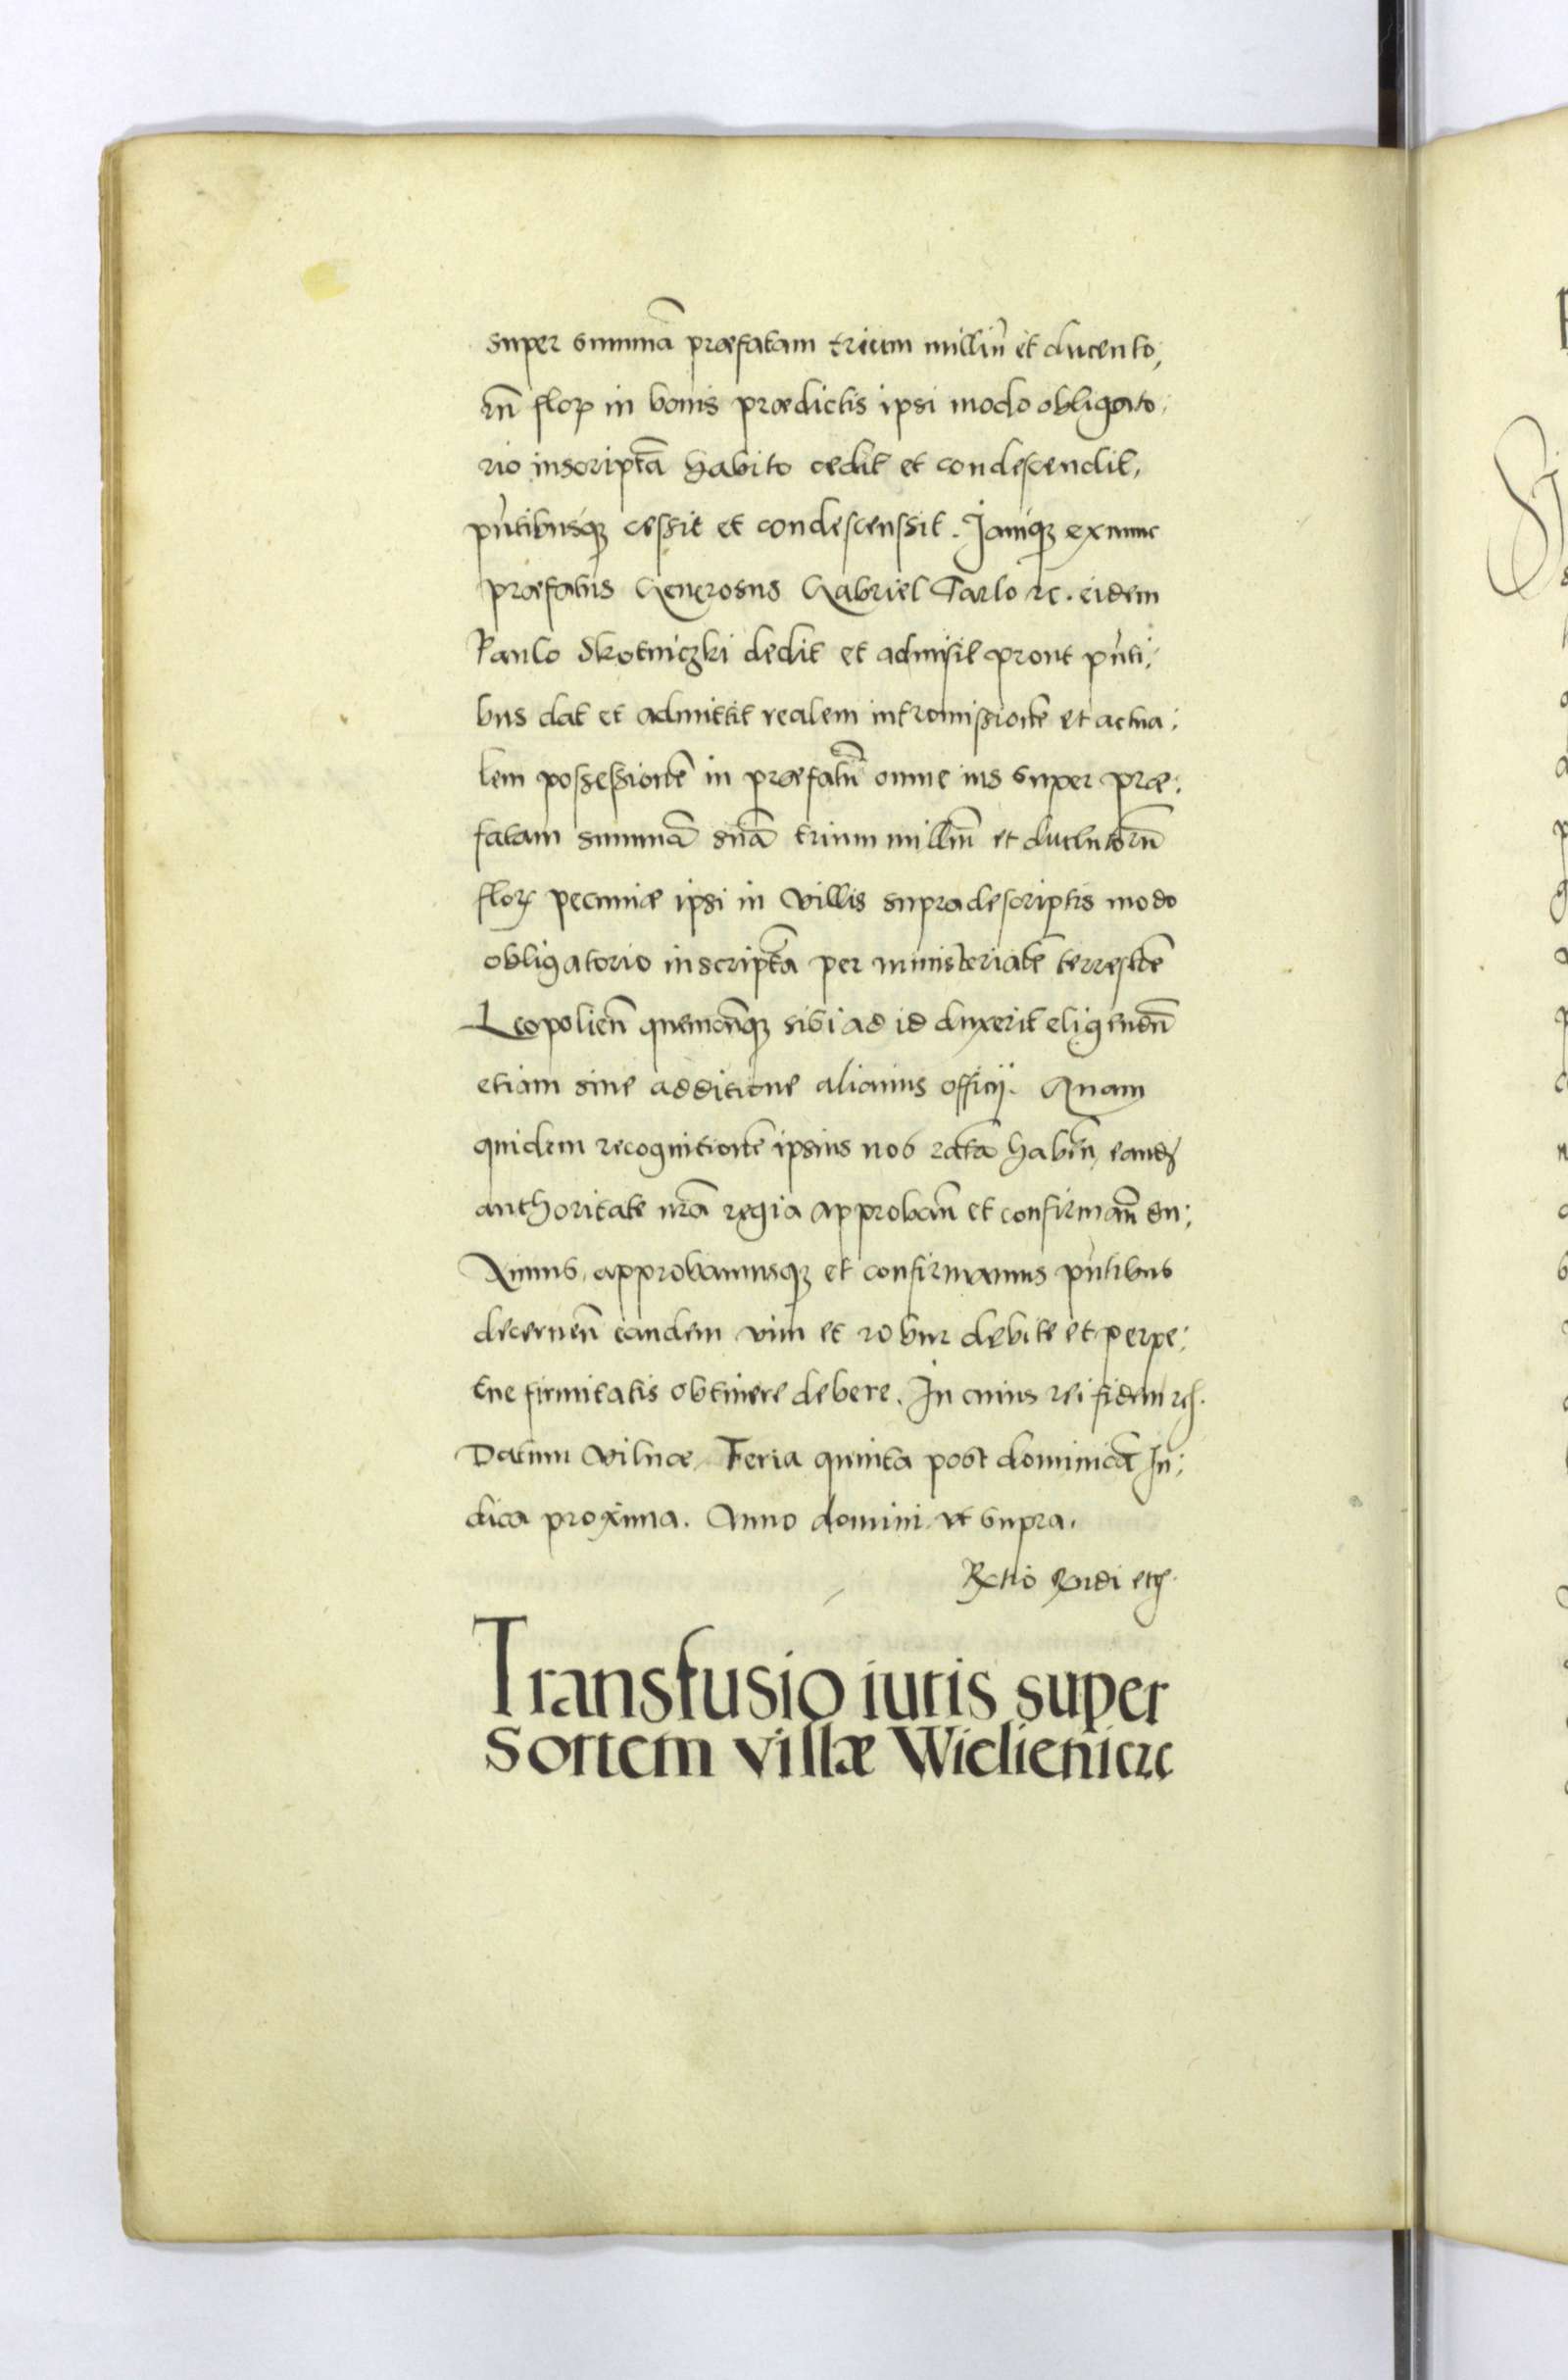 super summā præfatam trium milliū et ducento,
rū floꝝ in bonis prædictis ipsi modo obligato,
rio inscriptā habito cedit et condescendit,
pn̄tibusqꝫ cessit et condescenssit. Jamqꝫ exnunc
præfatus Generosus Gabriel Tarlo ꝛc. eidem
Paulo Skotniczki dedit et admisit prout pn̄ti,
bus dat et admittit realem intromissionē et actua,
lem possessionē in præfatū omne ius super præ,
fatam summā suā trium milliū et ducentorū
floꝝ pecuniæ ipsi in villis supradescriptis modo
obligatorio inscriptā per ministerialē terrestrē
Leopolien̄ quemcūqꝫ sibi ad id duxerit eligendū
etiam sine additione alicuius officij. Quam
quidem recognitionē ipsius nos ratā haben̄, eandē
authoritate nr̄a regia approban̄ et confirman̄ du,
ximus, approbamusqꝫ et confirmamus pn̄tibus
decernen̄ eandem vim et robur debite et perpe,
tue firmitatis obtinere debere. In cuius rei fidem ꝛc.
Datum Vilnæ Feria quinta post dominicā Iu,
dica proxima. Anno domini vt supra.
Rctio eiusdi etc.
Transfusio iuris super
sortem villæ Wielienicze